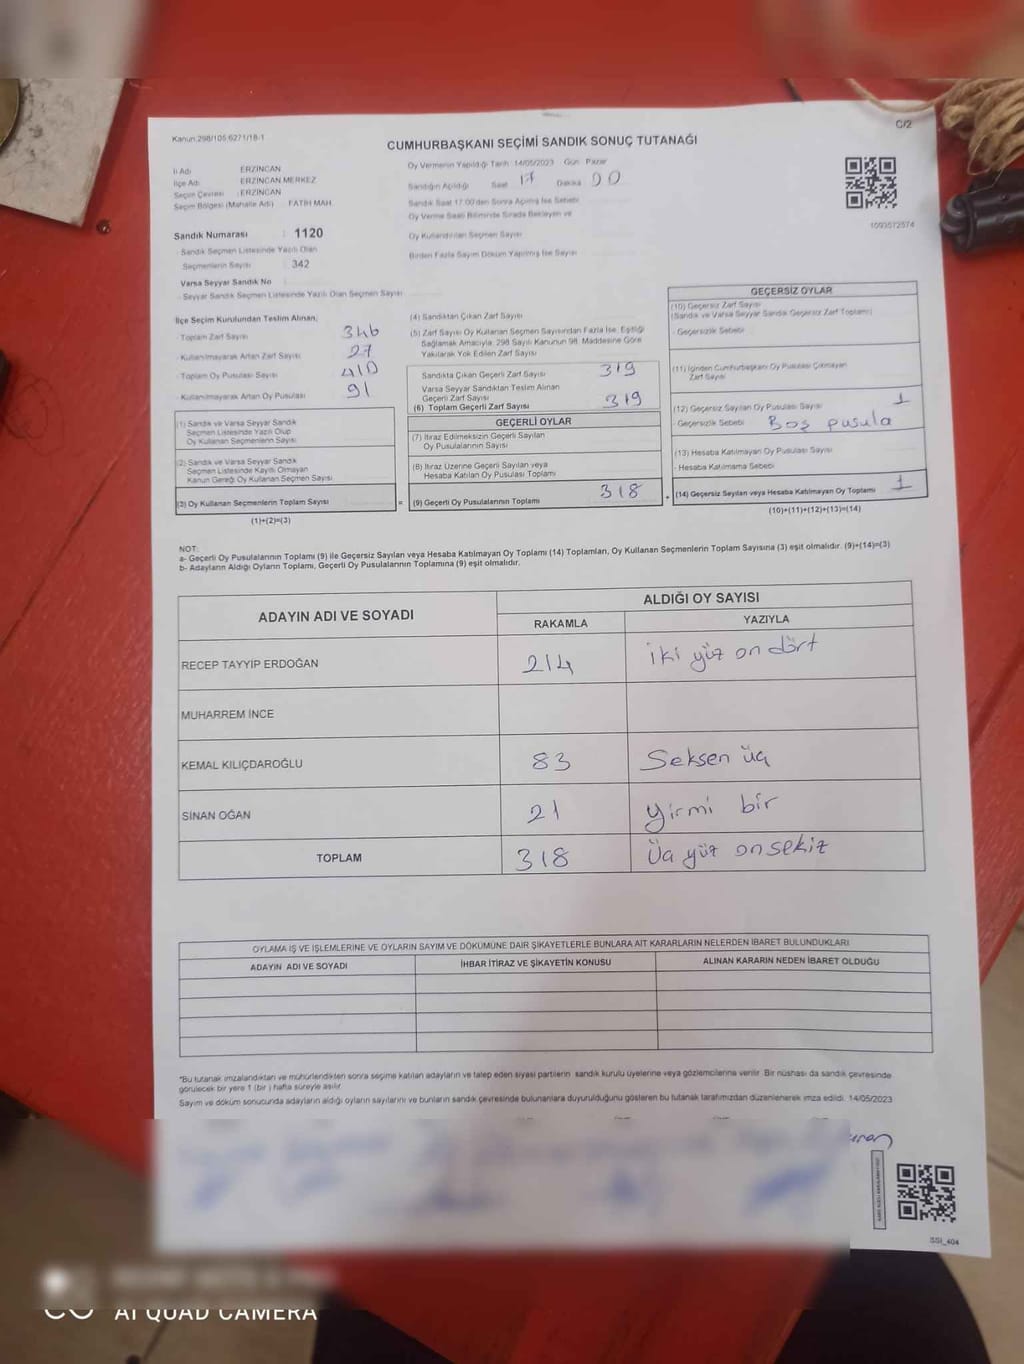 Kanun:298/105.6271/18-1
C/2
CUMHURBAŞKANI SEÇİMİ SANDIK SONUÇ TUTANAĞI
İli Adı ERZİNCAN
İlçe Adı ERZİNCAN MERKEZ
Seçim Çevresi : ERZİNCAN
Seçim Bölgesi (Mahalle Adı) FATİH MAH.
Sandık Numarası : 1120
- Sandık Seçmen Listesinde Yazılı Olan
Seçmenlerin Sayısı : 342
Varsa Seyyar Sandık No
- Seyyar Sandık Seçmen Listesinde Yazılı Olan Seçmen Sayısı
Oy Vermenin Yapıldığı Tarih 14/05/2023 Gün Pazar
Sandığın Açıldığı Saat 17 Dakika 00
Sandık Saat 17:00'den Sonra Açılmış İse Sebebi
Oy Verme Saati Bitiminde Sırada Bekleyen ve
Oy Kullandırılan Seçmen Sayısı
Birden Fazla Sayım Döküm Yapılmış İse Sayısı
1093572574
İlçe Seçim Kurulundan Teslim Alınan;
- Toplam Zarf Sayısı 346
- Kullanılmayarak Artan Zarf Sayısı 27
- Toplam Oy Pusulası Sayısı 410
- Kullanılmayarak Artan Oy Pusulası 91
(1) Sandık ve Varsa Seyyar Sandık
Seçmen Listesinde Yazılı Olup
Oy Kullanan Seçmenlerin Sayısı
(2) Sandık ve Varsa Seyyar Sandık
Seçmen Listesinde Kayıtlı Olmayan
Kanun Gereği Oy Kullanan Seçmen Sayısı
(3) Oy Kullanan Seçmenlerin Toplam Sayısı
(1)+(2)=(3)
(4) Sandıktan Çıkan Zarf Sayısı
(5) Zarf Sayısı Oy Kullanan Seçmen Sayısından Fazla İse, Eşitliği
Sağlamak Amacıyla, 298 Sayılı Kanunun 98. Maddesine Göre
Yakılarak Yok Edilen Zarf Sayısı
Sandıkta Çıkan Geçerli Zarf Sayısı 319
Varsa Seyyar Sandıktan Teslim Alınan
Geçerli Zarf Sayısı
(6) Toplam Geçerli Zarf Sayısı 319
GEÇERLİ OYLAR
(7) İtiraz Edilmeksizin Geçerli Sayılan
Oy Pusulalarının Sayısı
(8) İtiraz Üzerine Geçerli Sayılan veya
Hesaba Katılan Oy Pusulası Toplamı
= (9) Geçerli Oy Pusulalarının Toplamı 318
GEÇERSİZ OYLAR
(10) Geçersiz Zarf Sayısı
(Sandık ve Varsa Seyyar Sandık Geçersiz Zarf Toplamı)
- Geçersizlik Sebebi
(11) İçinden Cumhurbaşkanı Oy Pusulası Çıkmayan
Zarf Sayısı
(12) Geçersiz Sayılan Oy Pusulası Sayısı 1
- Geçersizlik Sebebi Boş pusula
(13) Hesaba Katılmayan Oy Pusulası Sayısı
- Hesaba Katılmama Sebebi
+ (14) Geçersiz Sayılan veya Hesaba Katılmayan Oy Toplamı 1
(10)+(11)+(12)+(13)=(14)
NOT:
a- Geçerli Oy Pusulalarının Toplamı (9) ile Geçersiz Sayılan veya Hesaba Katılmayan Oy Toplamı (14) Toplamları, Oy Kullanan Seçmenlerin Toplam Sayısına (3) eşit olmalıdır. (9)+(14)=(3)
b- Adayların Aldığı Oyların Toplamı, Geçerli Oy Pusulalarının Toplamına (9) eşit olmalıdır.
ADAYIN ADI VE SOYADI
ALDIĞI OY SAYISI
RAKAMLA YAZIYLA
RECEP TAYYİP ERDOĞAN 214 iki yüz on dört
MUHARREM İNCE
KEMAL KILIÇDAROĞLU 83 Seksen üç
SİNAN OĞAN 21 yirmi bir
TOPLAM 318 Üç yüz onsekiz
OYLAMA İŞ VE İŞLEMLERİNE VE OYLARIN SAYIM VE DÖKÜMÜNE DAİR ŞİKAYETLERLE BUNLARA AİT KARARLARIN NELERDEN İBARET BULUNDUKLARI
ADAYIN ADI VE SOYADI İHBAR İTİRAZ VE ŞİKAYETİN KONUSU ALINAN KARARIN NEDEN İBARET OLDUĞU
*Bu tutanak imzalandıktan ve mühürlendikten sonra seçime katılan adayların ve talep eden siyasi partilerin sandık kurulu üyelerine veya gözlemcilerine verilir. Bir nüshası da sandık çevresinde
görülecek bir yere 1 (bir) hafta süreyle asılır.
Sayım ve döküm sonucunda adayların aldığı oyların sayılarını ve bunların sandık çevresinde bulunanlara duyurulduğunu gösteren bu tutanak tarafımızdan düzenlenerek imza edildi. 14/05/2023
SSI_404
AI QUAD CAMERA